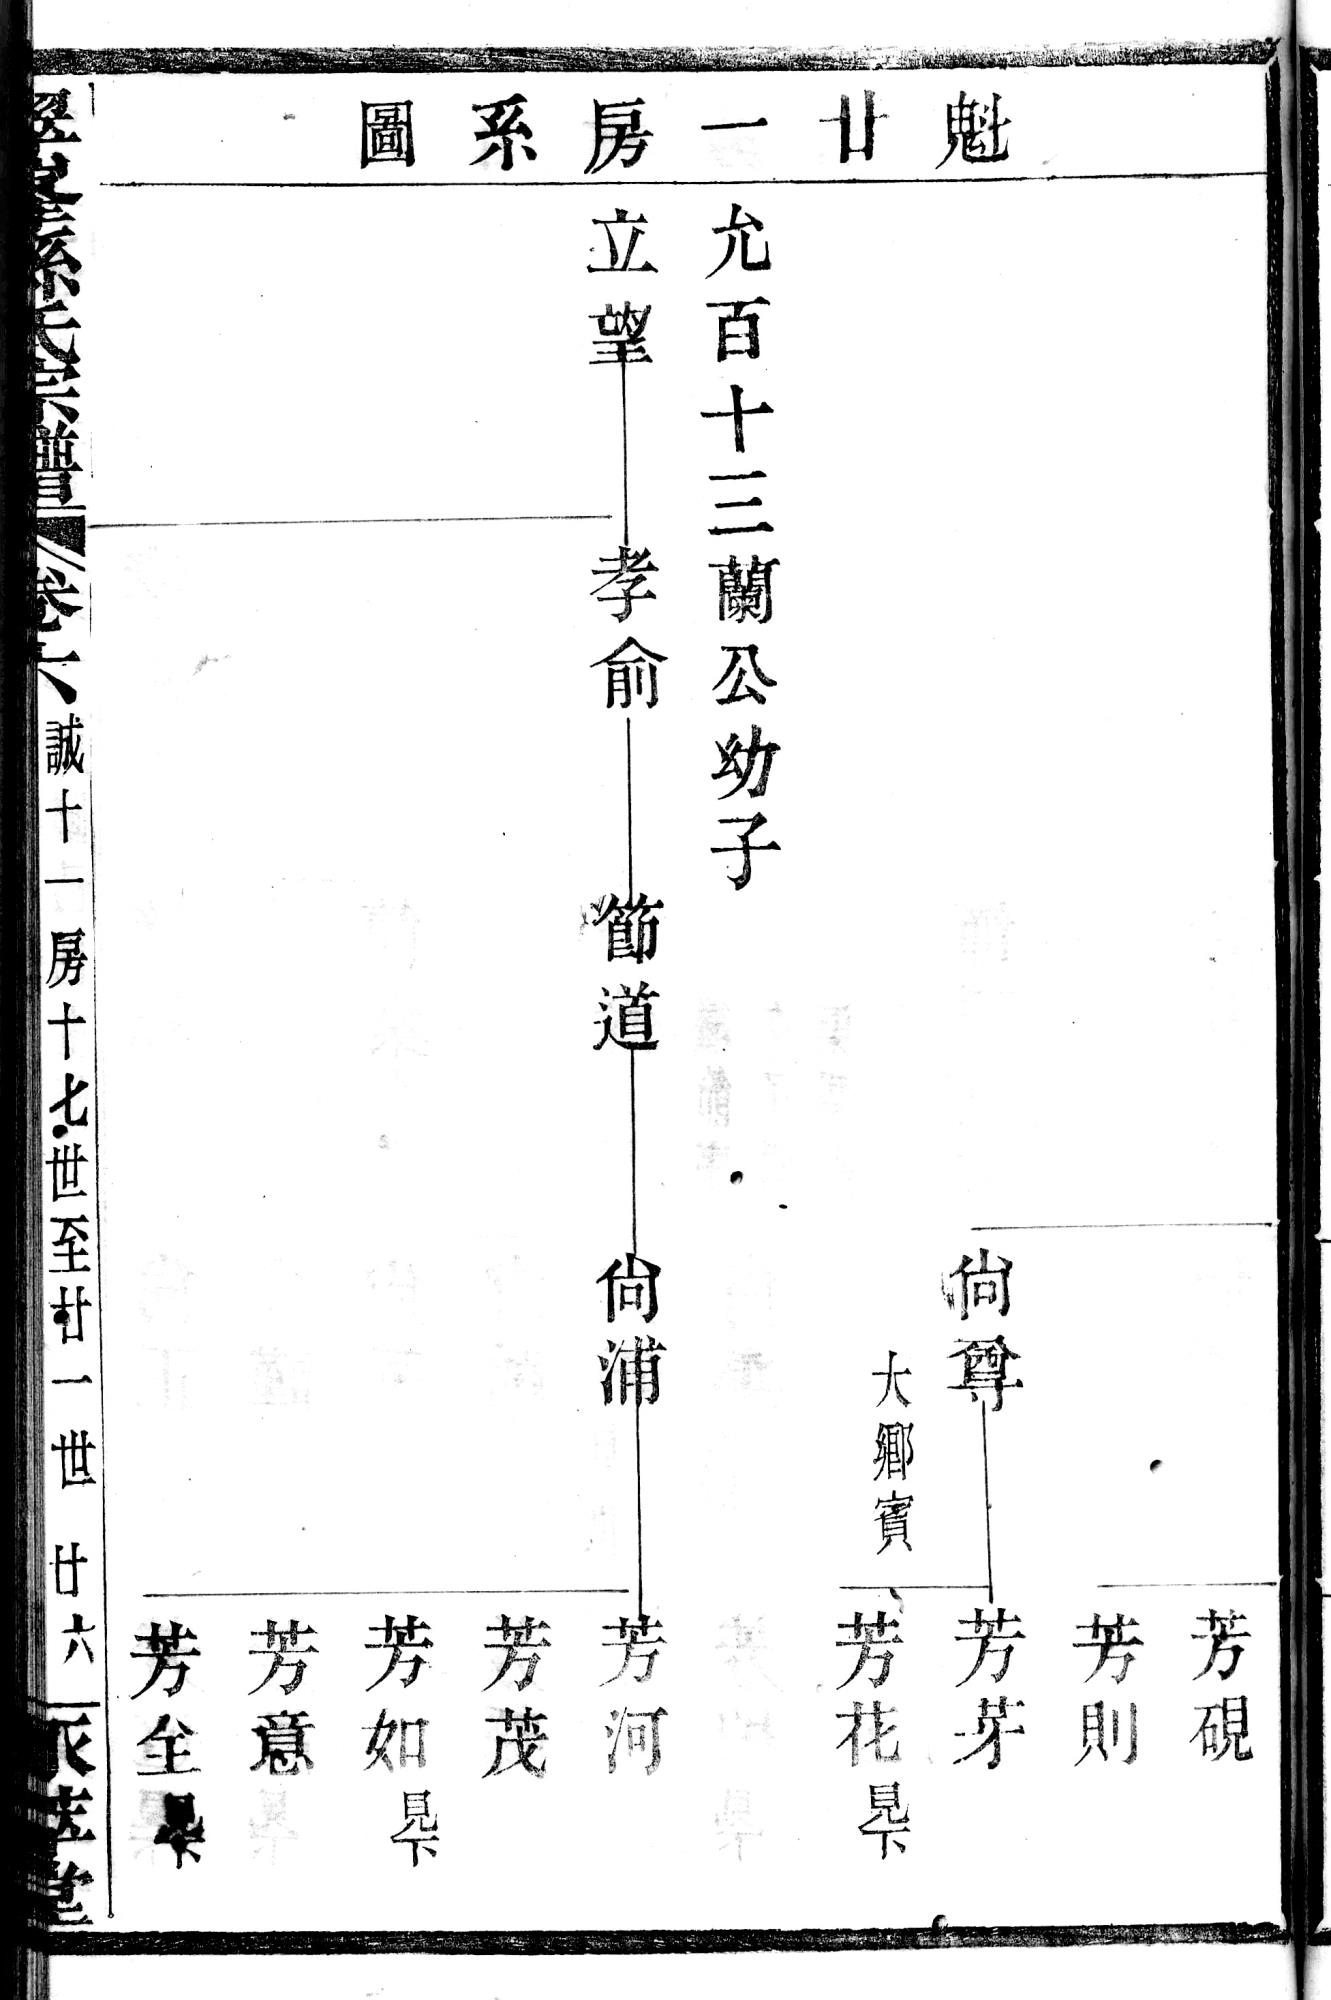 魁廿一房系圖
芳硯
芳則
尙尊
芳芽
大鄉賓
芳花見下
允百十三蘭公幼子
立望
孝俞
節道
尙浦
芳河
芳茂
芳如見下
芳意
芳全見下
孫氏宗譜
卷六
誠十一房十七世至廿一世
廿六
堂